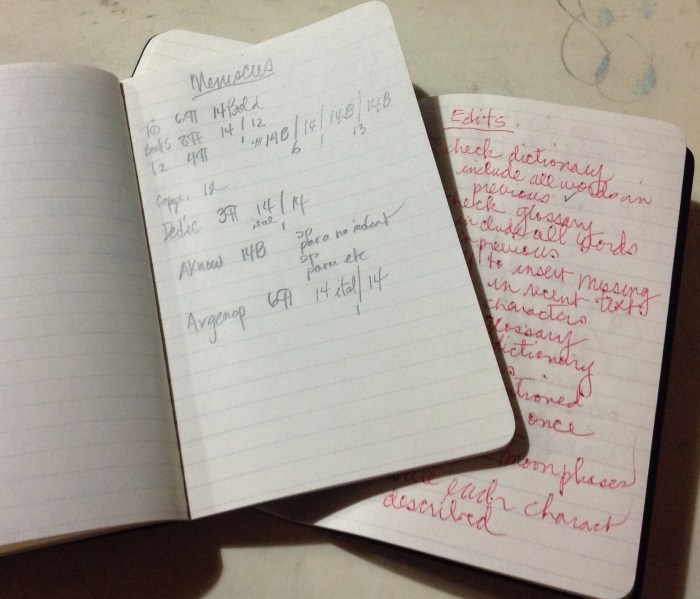 Meniscus
To 6¶ 14 Bold
books 8¶ 14 / 12
T2 4¶ 14B / 14 / 14B / 14B
6 1 13
copyr. 12
Dedic 3¶ 14 / 14
ital 1
Aknow 14B sp
para no indent
sp
para etc
Argenop 6¶ 14 ital / 14
1
Edits
check dictionary
include all words in
previous ✓
check glossary
include all words
previous
to insert missing
in recent text
characters
glossary
dictionary
tioned
once
moonphases
each charact
described